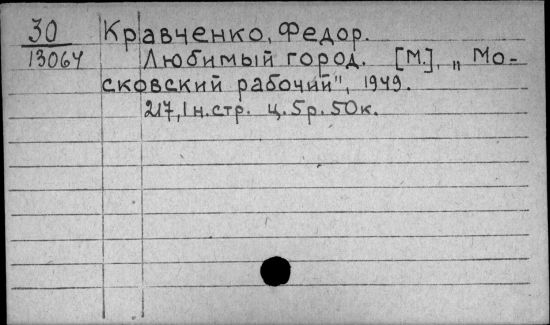 30 Кравченко, Федор.
13064 Любимый город. [М.], „Мо-
сковский рабочий", 1949.
217, 1 н.стр. ц. 5р. 50к.